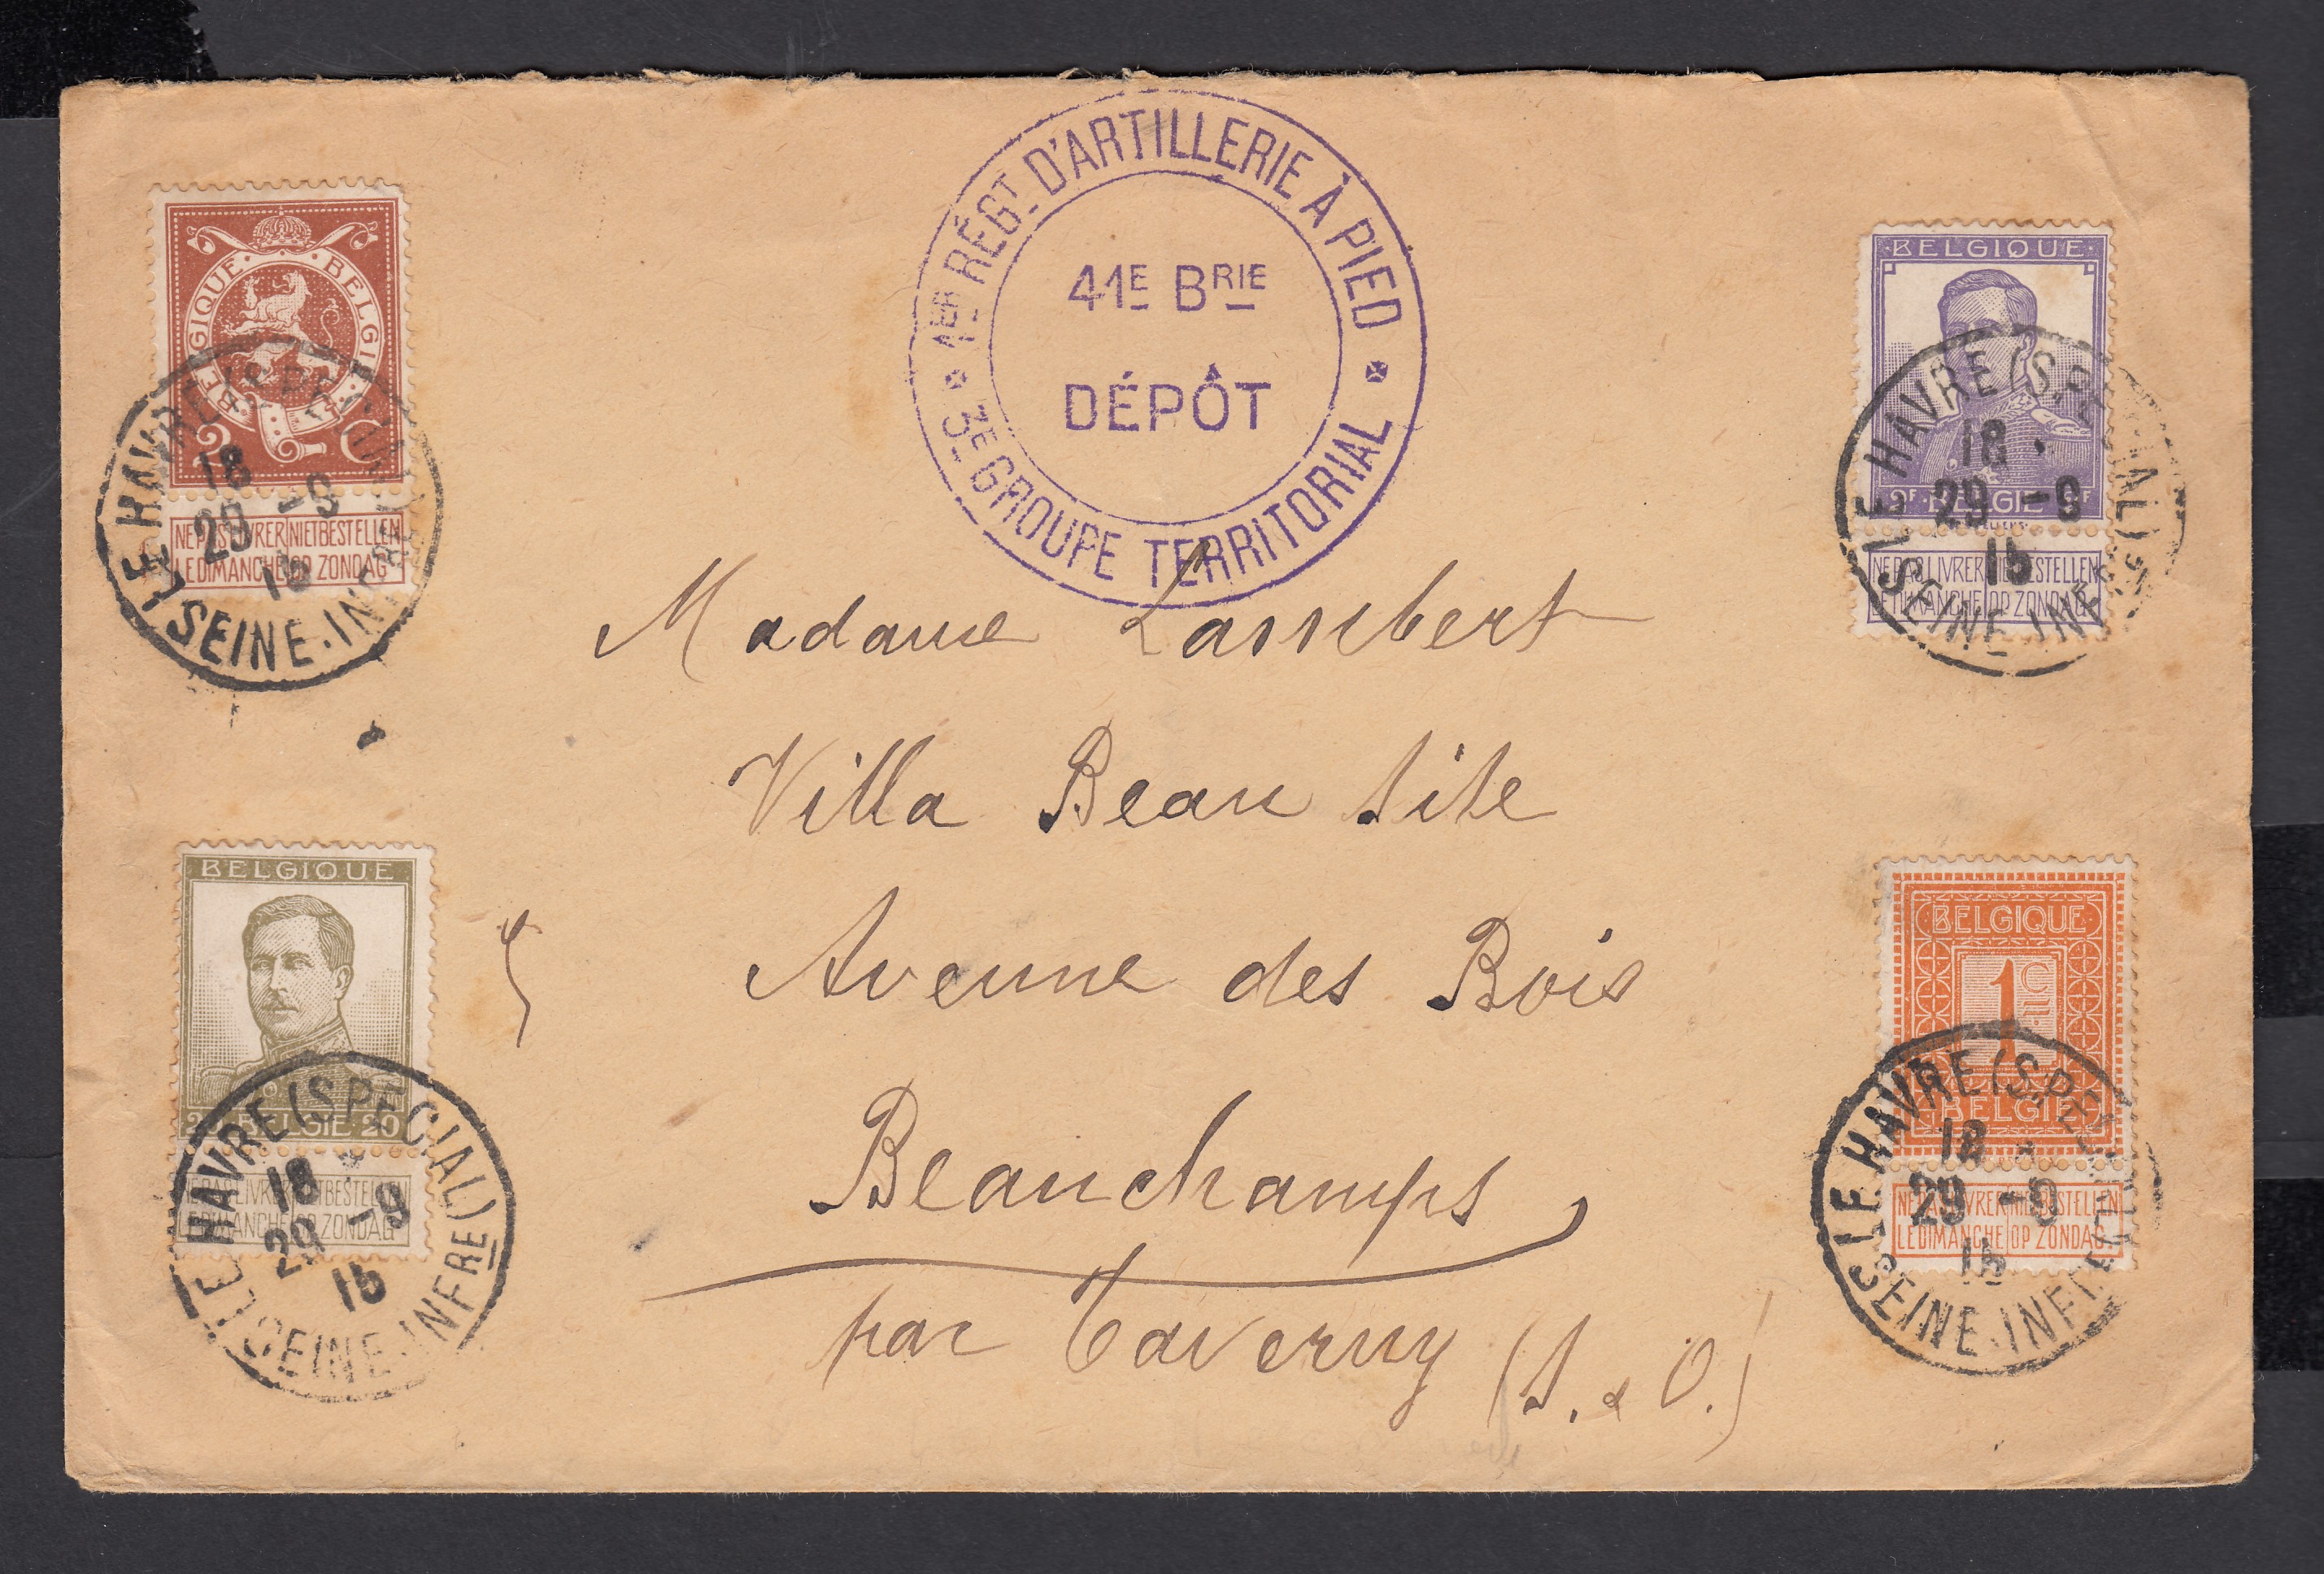 1ER RÉGT D'ARTILLERIE À PIED
41E BRIE
DÉPÔT
3E GROUPE TERRITORIAL
BELGIQUE · BELGIË
2 C
NE PAS LIVRER NIET BESTELLEN
LE DIMANCHE OP ZONDAG
LE HAVRE (SPECIAL)
18
29 -9
15
SEINE-INFRE
BELGIQUE
2F BELGIË 2F
NE PAS LIVRER NIET BESTELLEN
LE DIMANCHE OP ZONDAG
LE HAVRE (SPECIAL)
18
29 -9
15
SEINE-INFRE
Madame Lambert
Villa Beau Site
Avenue des Bois
Beauchamps
par Taverny (S. & O.)
BELGIQUE
20 BELGIË 20
NE PAS LIVRER NIET BESTELLEN
LE DIMANCHE OP ZONDAG
LE HAVRE (SPECIAL)
18
29 -9
15
SEINE-INFRE
BELGIQUE
1C
BELGIË
NE PAS LIVRER NIET BESTELLEN
LE DIMANCHE OP ZONDAG
LE HAVRE (SPECIAL)
18
29 -9
15
SEINE-INFRE